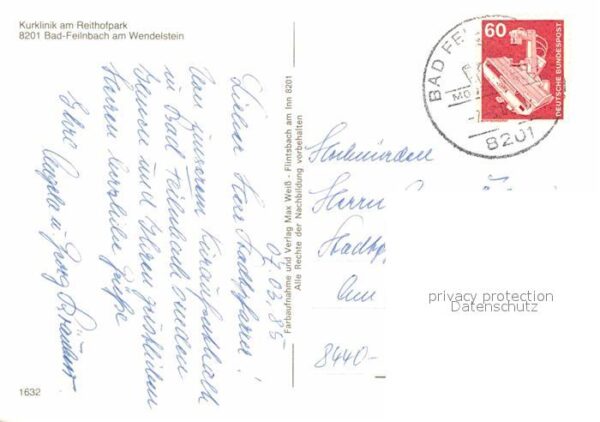 Kurklinik am Reithofpark
8201 Bad-Feilnbach am Wendelstein
07.03.85
Lieber Herr Stadtpfarrer!
Von unserem Kuraufenthalt
in Bad Feilnbach senden
Ihnen und Ihren geistlichen
Herren herzliche Grüße
Ihre
u. Georg
1632
Farbaufnahme und Verlag Max Weiß - Flintsbach am Inn 8201
Alle Rechte der Nachbildung vorbehalten
60
DEUTSCHE BUNDESPOST
BAD FE
MO
8201
Hochwürden
Herrn
Stadtp
Am
8440-
privacy protection
Datenschutz